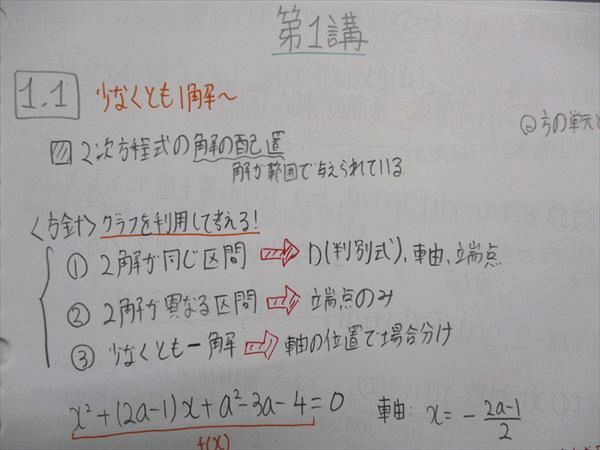 第1講
1.1 少なくとも1解〜
2次方程式の解の配置
解が範囲で与えられている
②方の単元
〈方針〉グラフを利用して考える!
① 2解が同じ区間 ⇒ D(判別式)、軸、端点
② 2解が異なる区間 ⇒ 端点のみ
③ 少なくとも一解 ⇒ 軸の位置で場合分け
x²+(2a-1)x+a²-3a-4=0 軸: x=-(2a-1)/2
f(x)